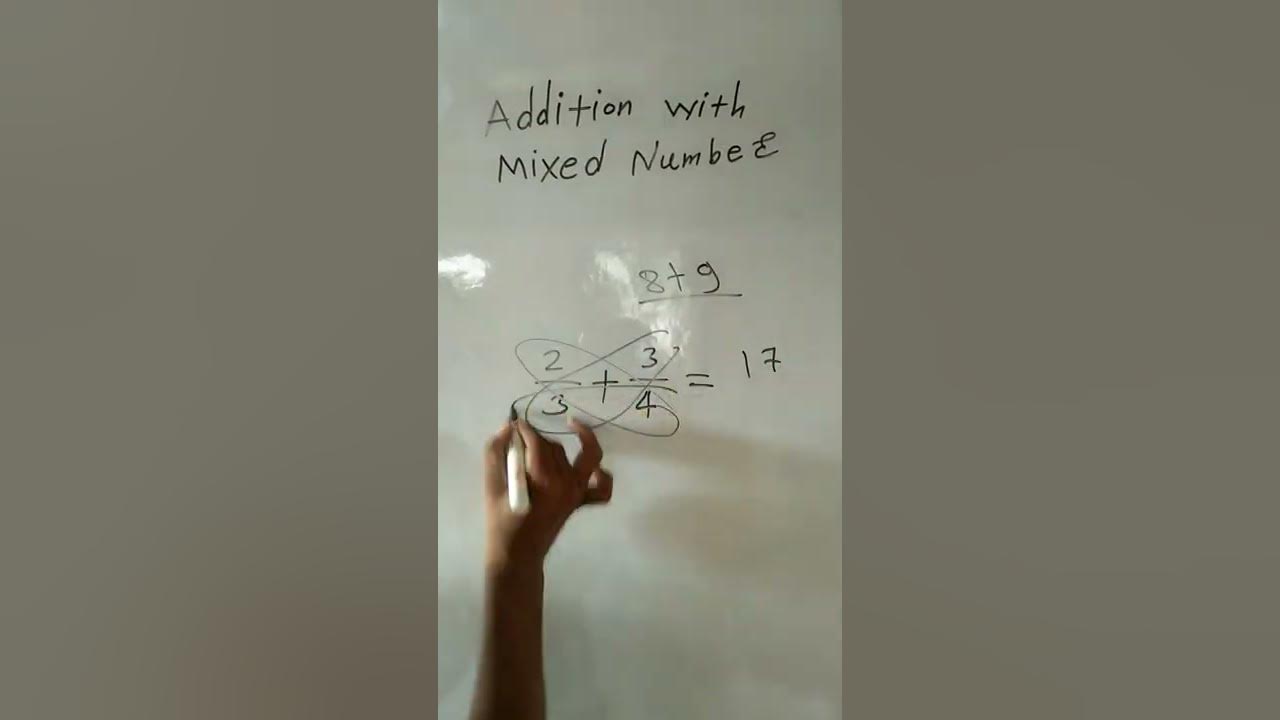 Addition with
Mixed Number
8+9
2/3 + 3/4 = 17